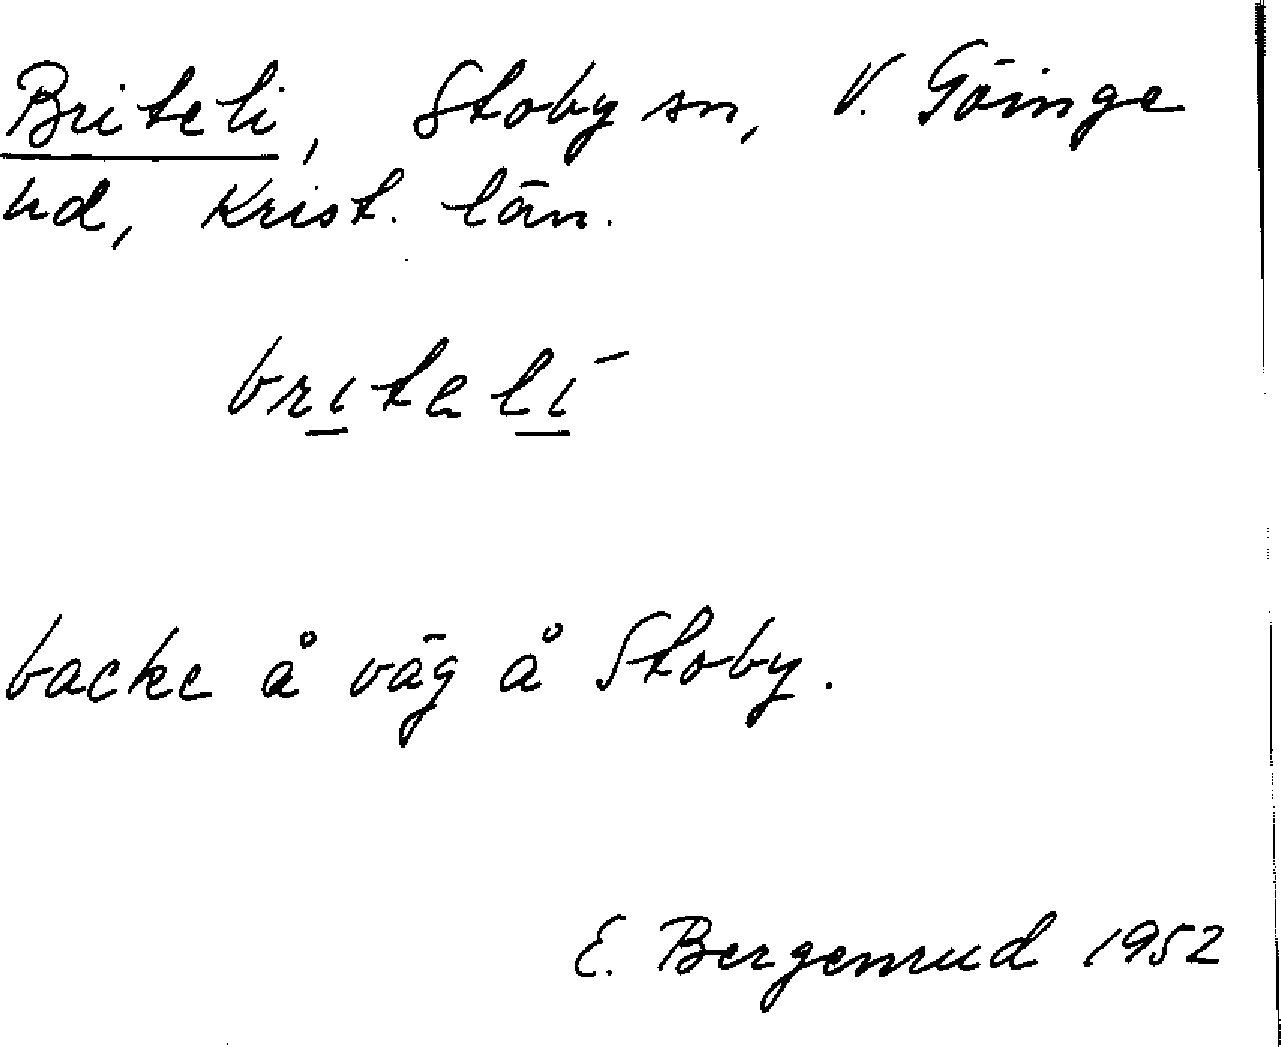 Briteli, Stoby sn, V. Göinge
hd, Krist. län.
briteli
backe å väg å Stoby.
E. Bergenrud 1952